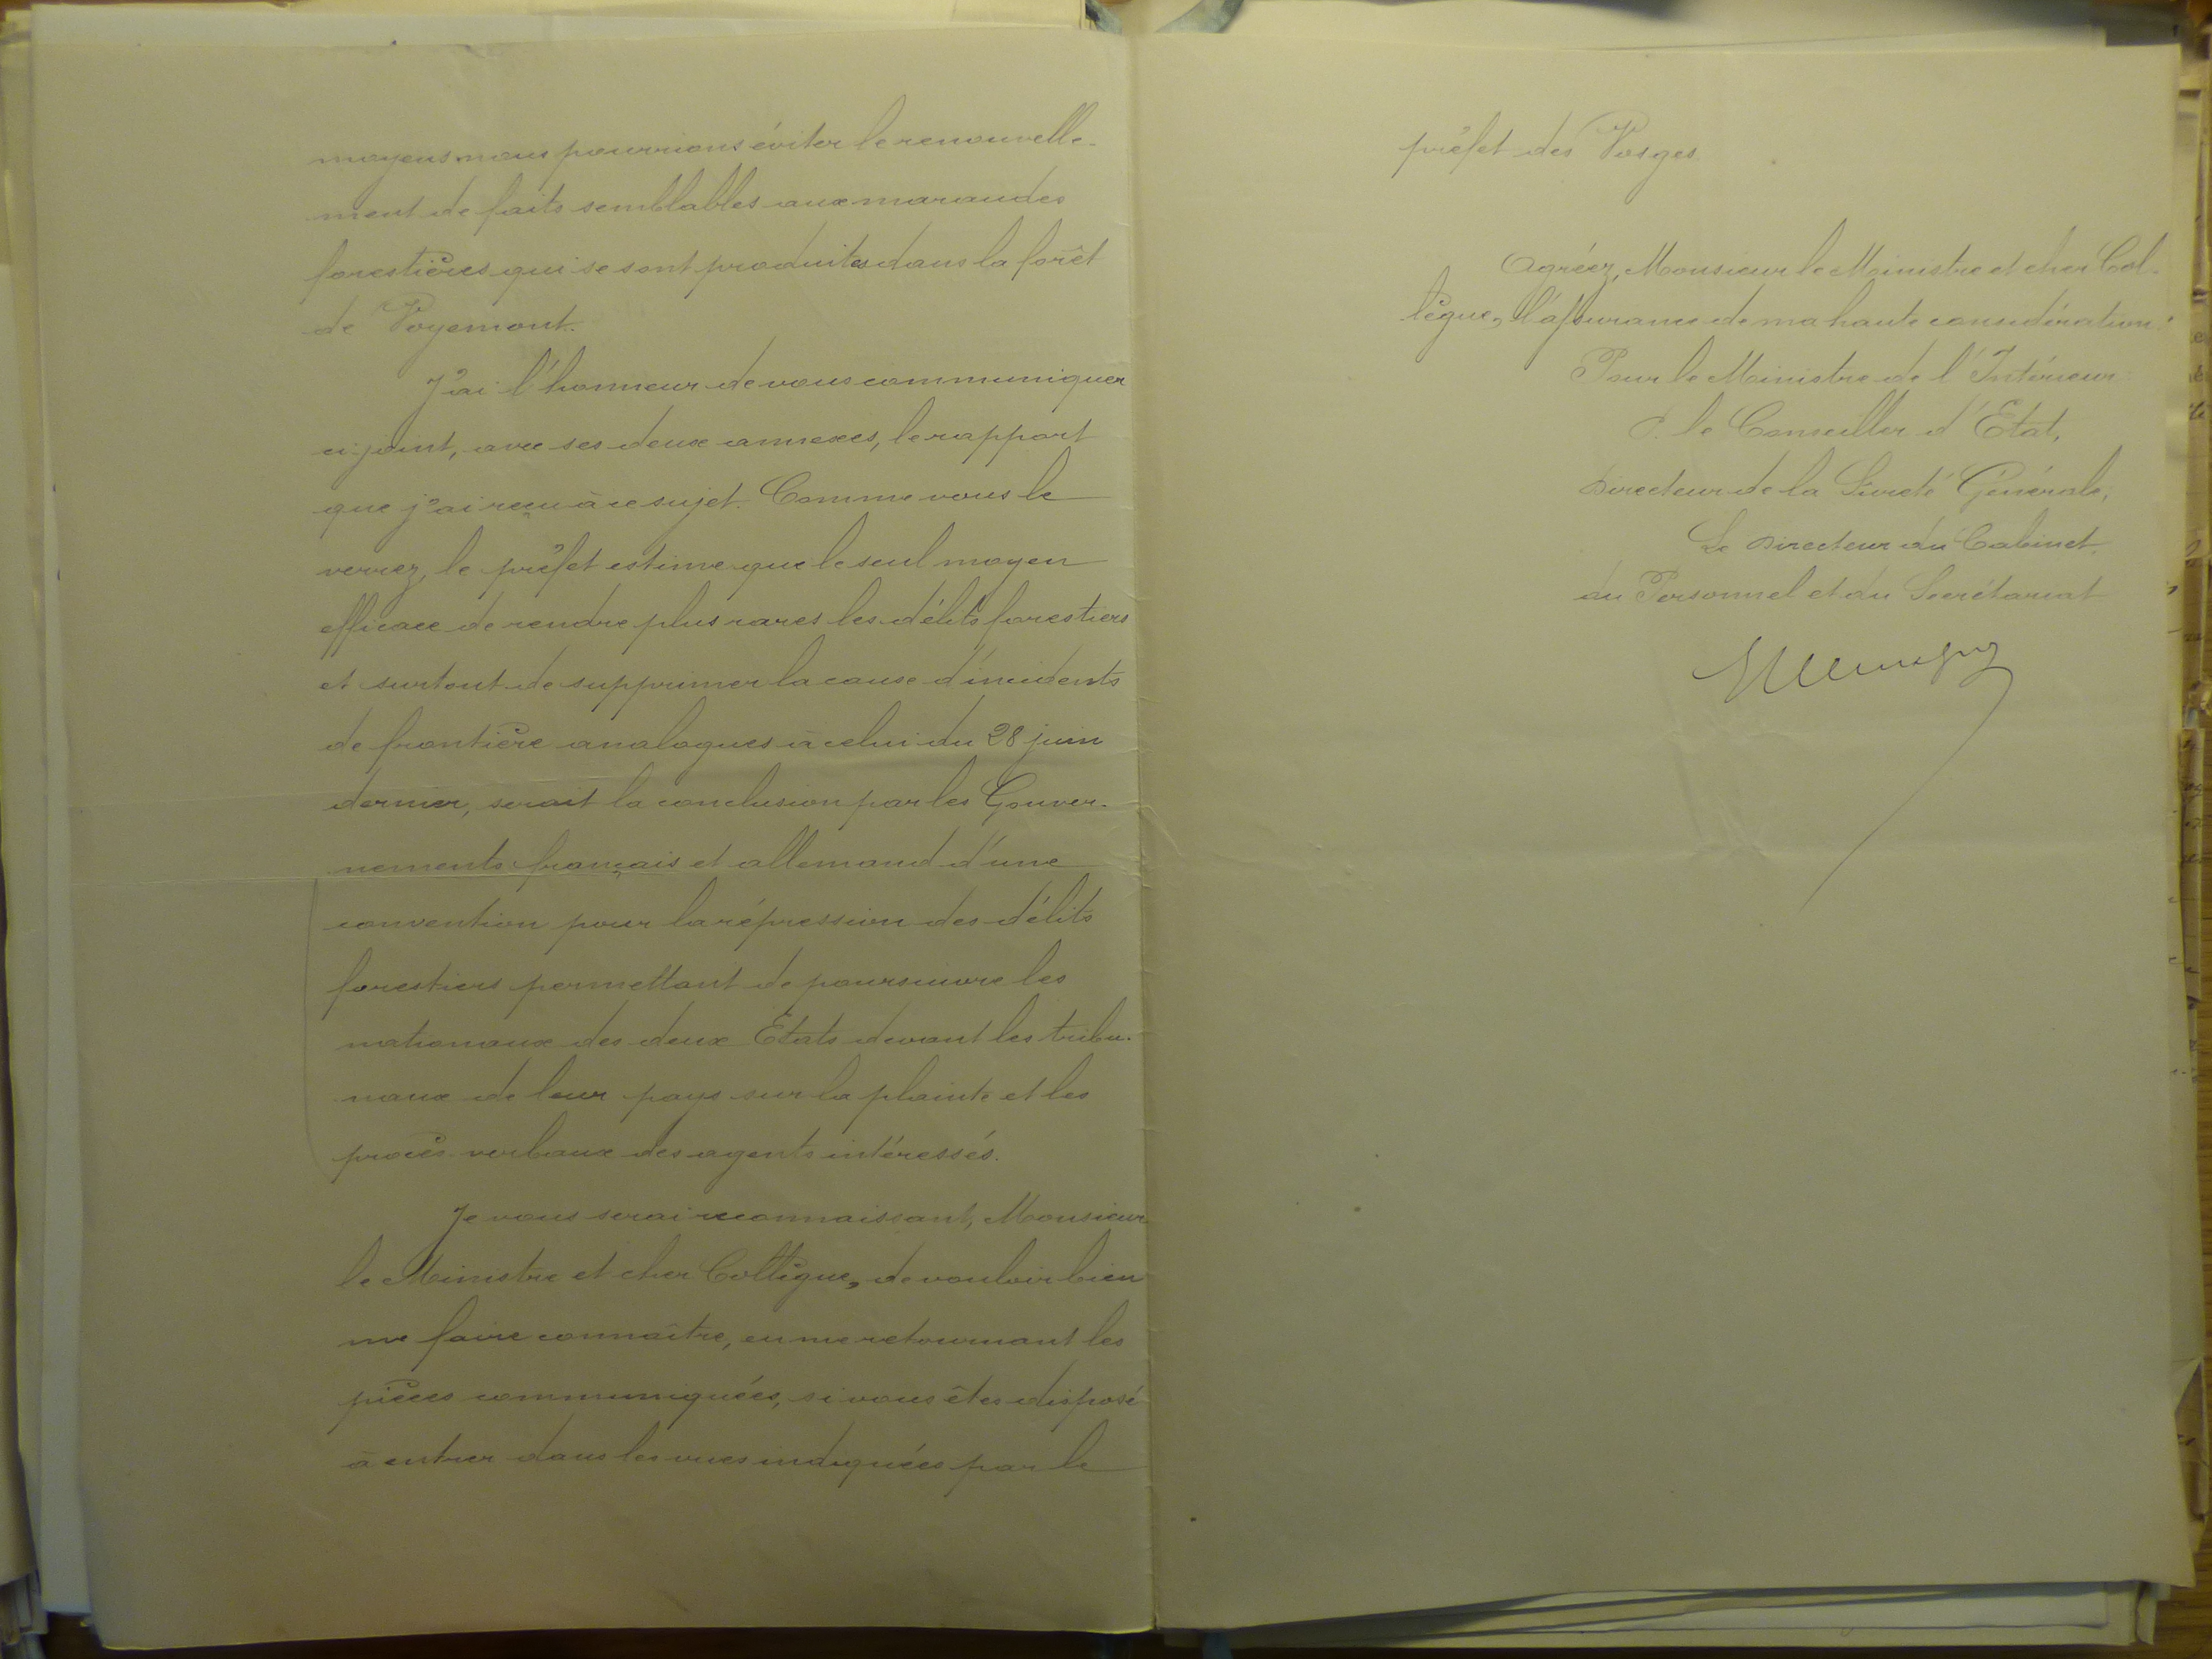 moyens nous pourrions éviter le renouvelle-
ment de faits semblables aux maraudes
forestières qui se sont produites dans la forêt
de Voyemont.
J'ai l'honneur de vous communiquer
ci-joint, avec ses deux annexes, le rapport
que j'ai reçu à ce sujet. Comme vous le
verrez, le préfet estime que le seul moyen
efficace de rendre plus rares les délits forestiers
et surtout de supprimer la cause d'incidents
de frontière analogues à celui du 28 juin
dernier, serait la conclusion par les Gouver-
nements français et allemand d'une
convention pour la répression des délits
forestiers permettant de poursuivre les
nationaux des deux Etats devant les tribu-
naux de leur pays sur la plainte et les
procès-verbaux des agents intéressés.
Je vous serai reconnaissant, Monsieur
le Ministre et cher Collègue, de vouloir bien
me faire connaître, en me retournant les
pièces communiquées, si vous êtes disposé
à entrer dans les vues indiquées par le
préfet des Vosges.
Agréez, Monsieur le Ministre et cher Col-
lègue, l'assurance de ma haute considération.
Pour le Ministre de l'Intérieur:
P. le Conseiller d'Etat,
Directeur de la Sûreté Générale,
Le Directeur du Cabinet,
du Personnel et du Secrétariat